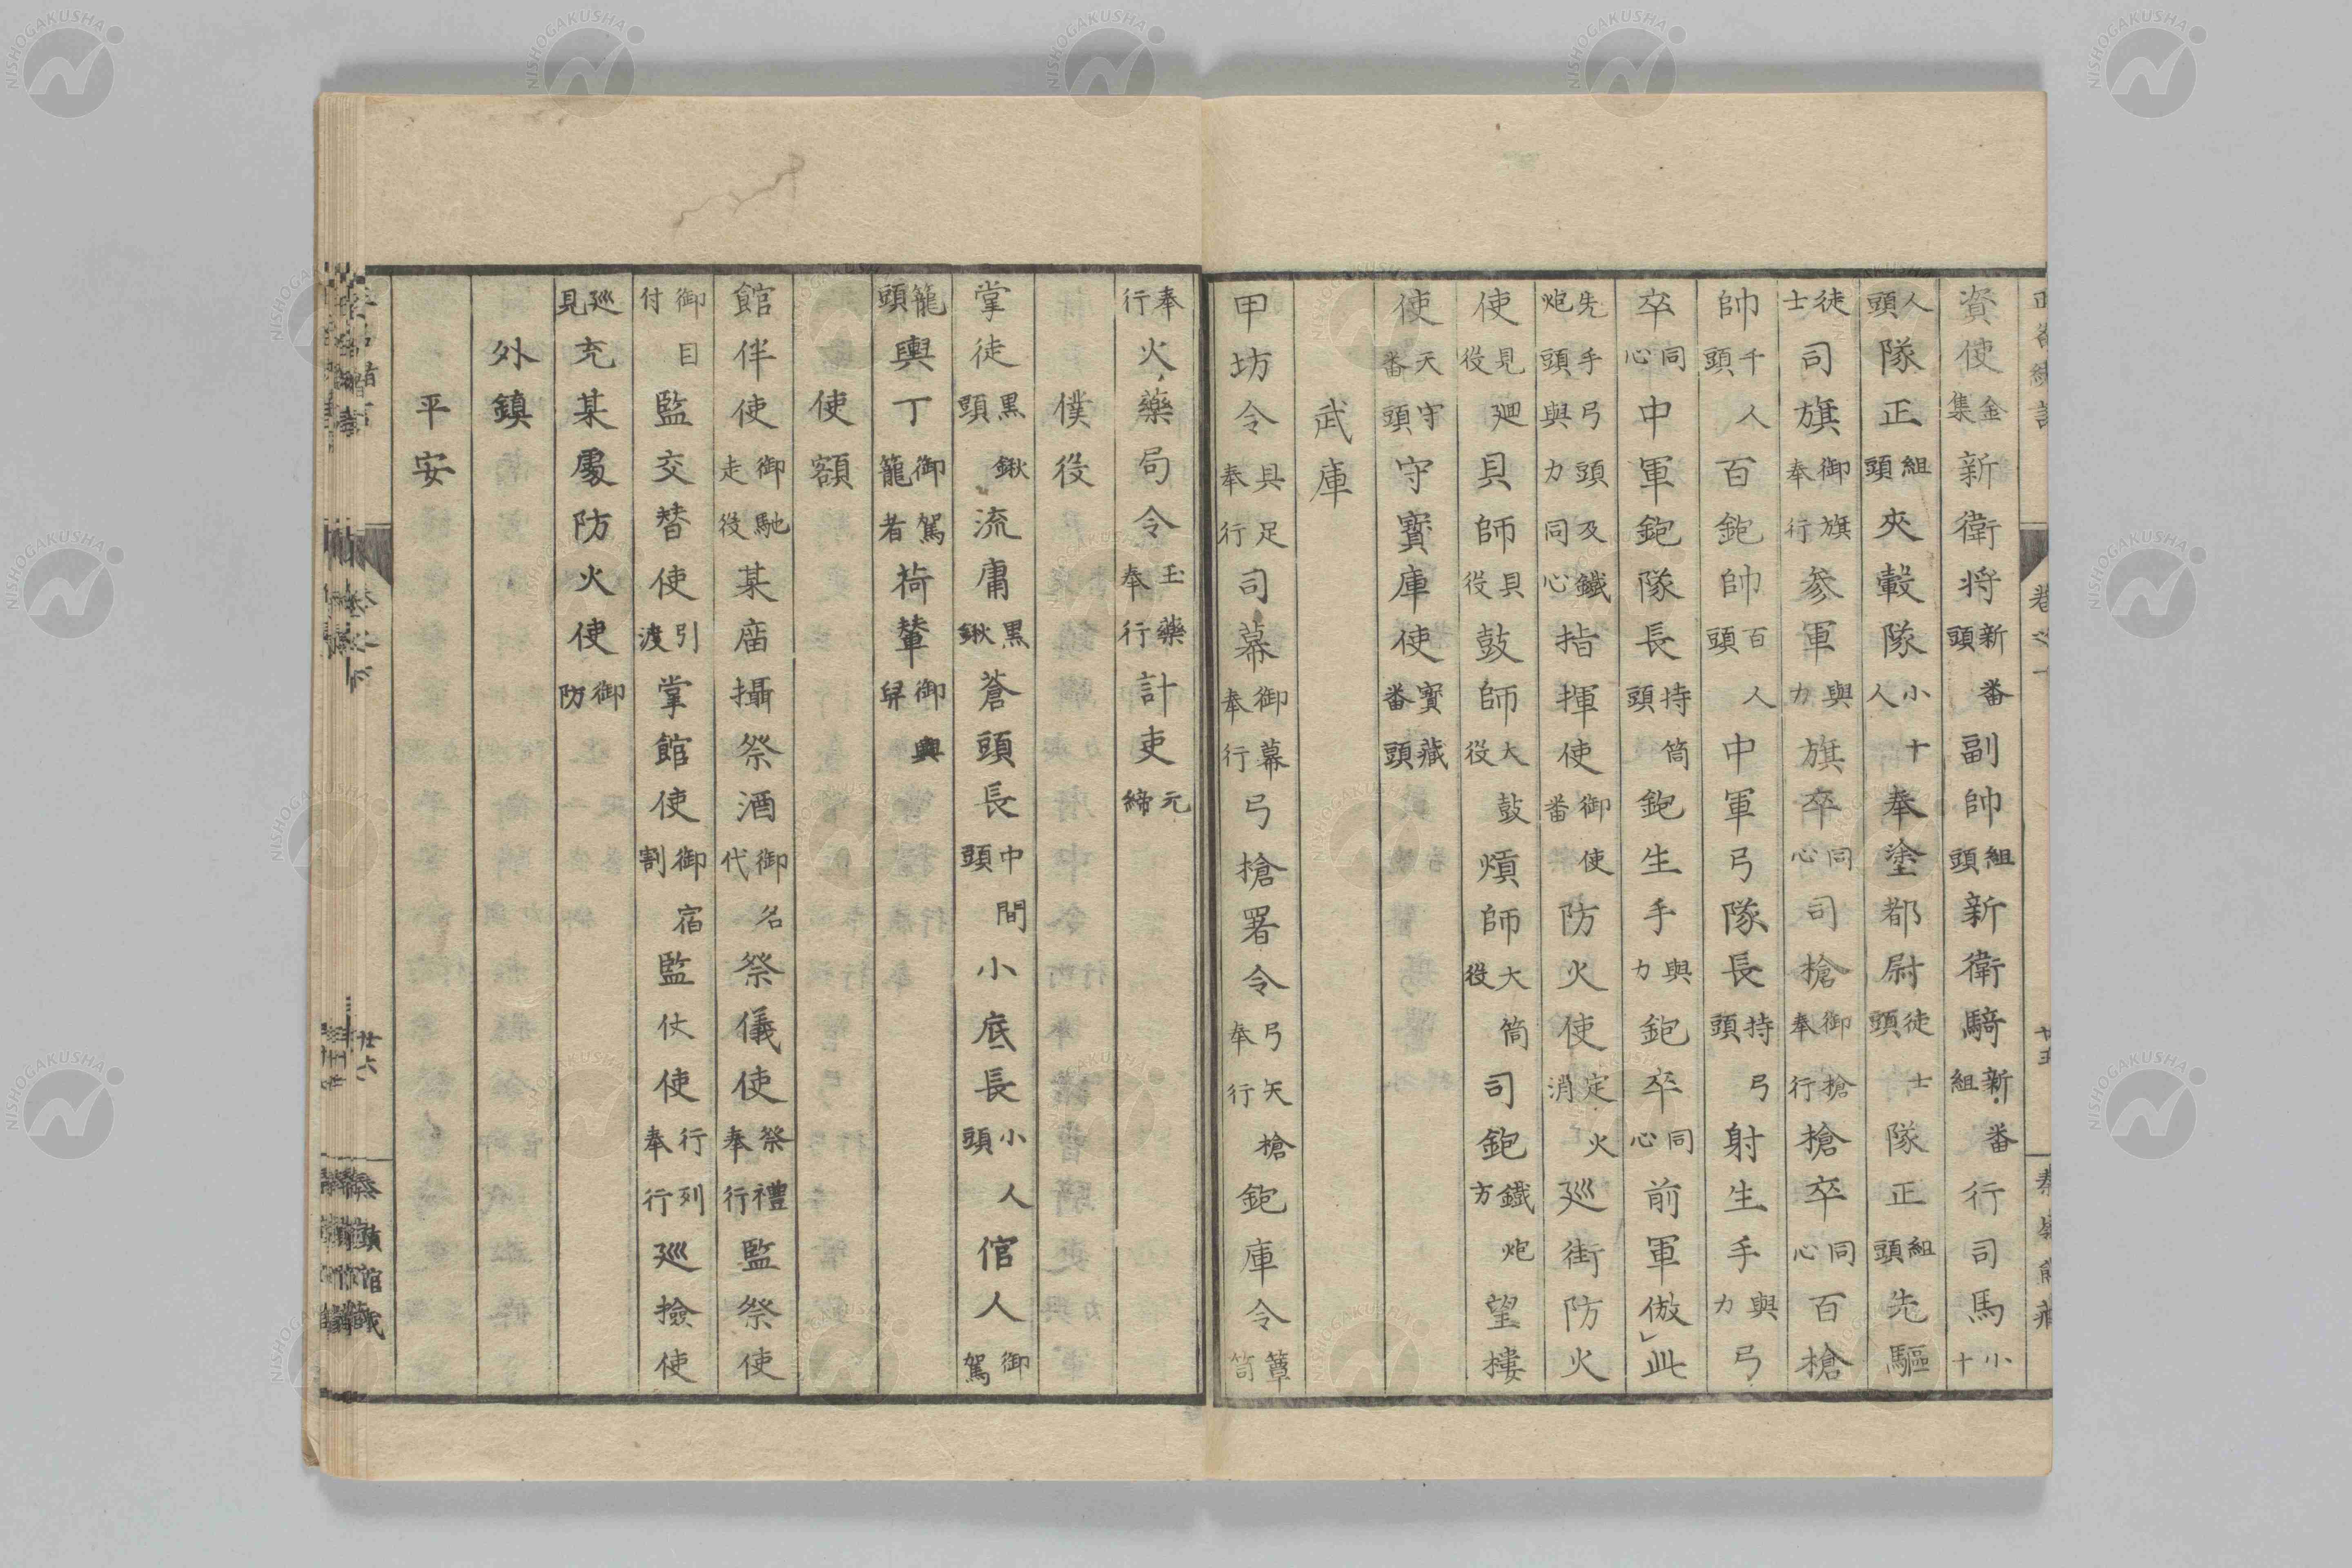 資使金集新衛将新番頭副帥組頭新衛騎新番組行司馬小十
人頭隊正組頭夾轂隊小十人奉塗都尉徒士頭隊正組頭先驅
徒士司旗御旗奉行參軍與力旗卒同心司槍御槍奉行槍卒同心百槍
帥千人頭百鉋帥百人頭中軍弓隊長持弓頭射生手與力弓
卒同心中軍鉋隊長持筒頭鉋生手與力鉋卒同心前軍倣此
先手弓頭及鐵炮頭與力同心指揮使御使番防火使定火消巡街防火
使見廻役貝師貝役鼓師大鼓役熕師大筒役司鉋鐵炮方望樓
使天守番頭守寶庫使寶藏番頭
武庫
甲坊令具足奉行司幕御幕奉行弓槍署令弓矢槍奉行鉋庫令簞笥
奉行火藥局令玉藥奉行計吏元締
僕役
掌徒黒鍬頭流庸黒鍬蒼頭長中間頭小底長小人頭倌人御駕
籠頭輿丁御駕籠者荷輦御輿舁
使額
館伴使御馳走役某庿攝祭酒御名代祭儀使祭禮奉行監祭使
御目付監交替使引渡掌館使御宿割監仗使行列奉行巡撿使
巡見充某處防火使御防
外鎮
平安
卷之
廿六